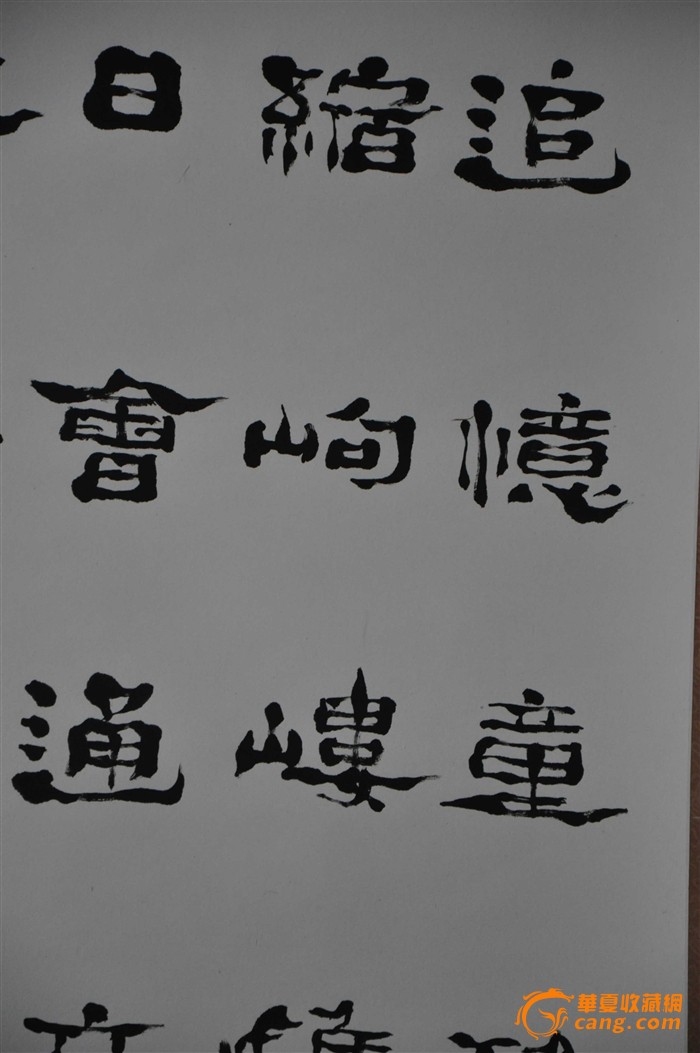 追憶童
縮岣嶁
日會通
華夏收藏網
cang.com